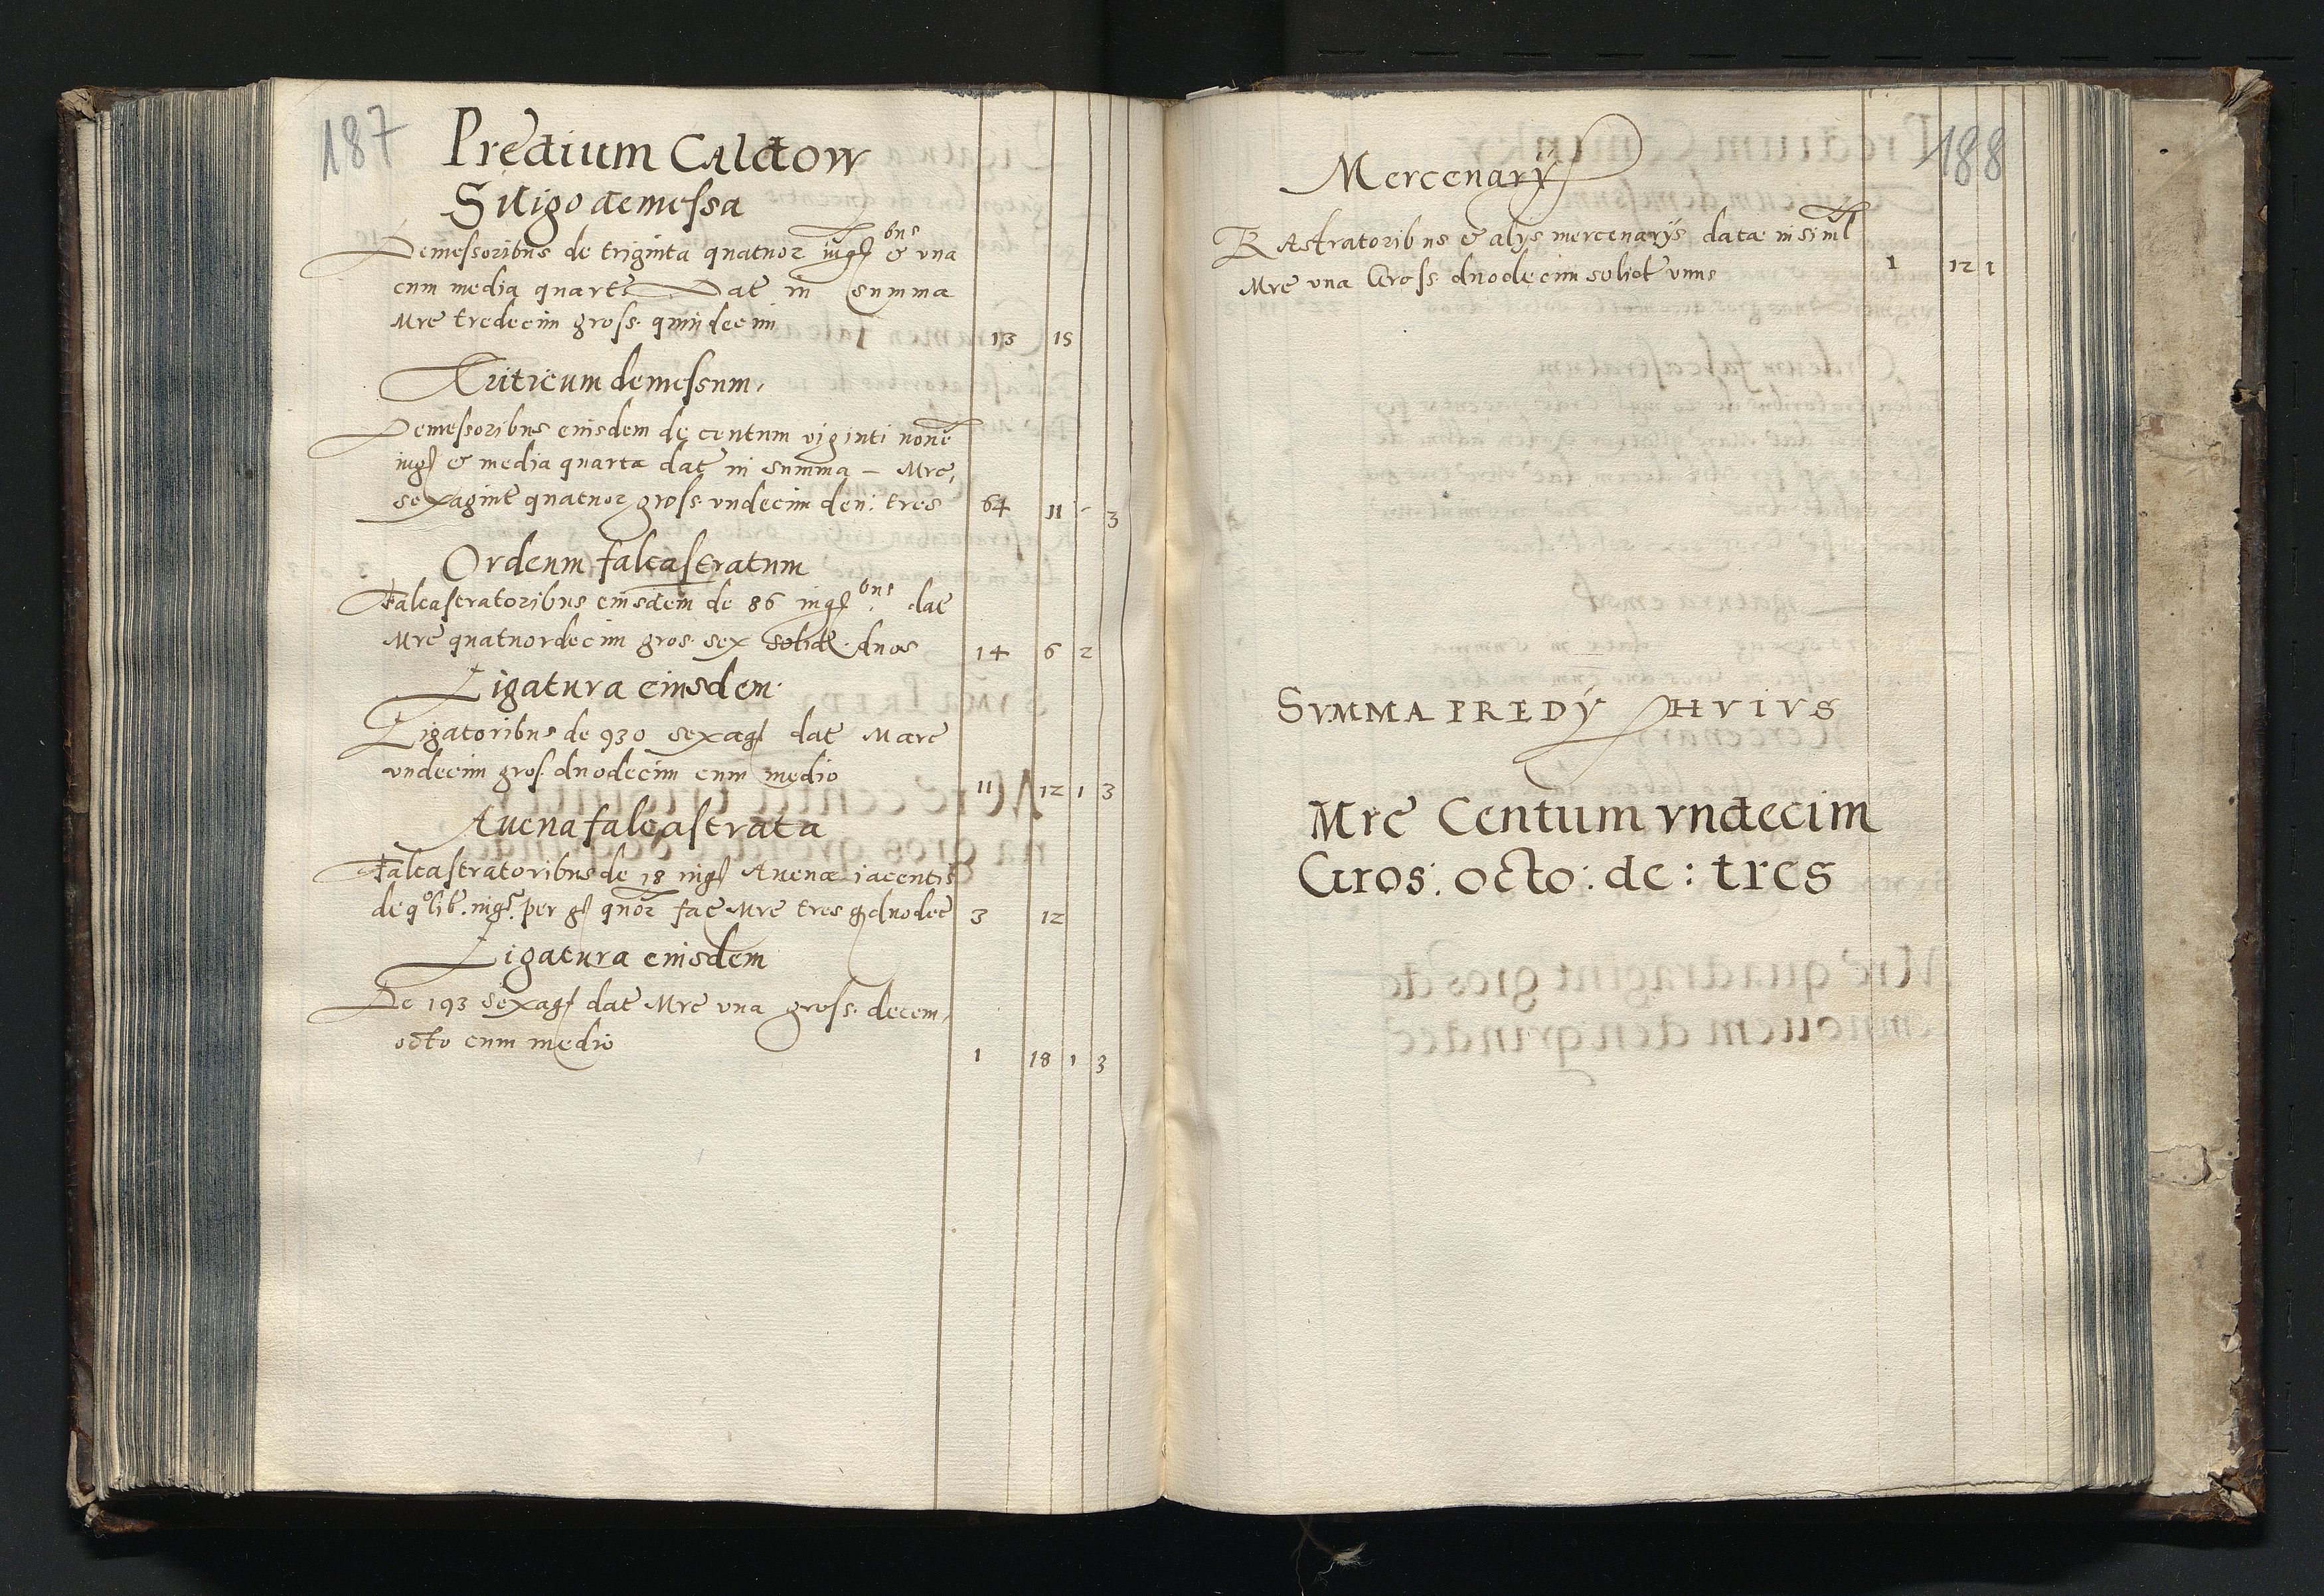 187
Predium Caldow
Siligo demessa
Demessoribus de triginta quatuor iug bus & vna
cum media quarte Dat in summa
Mre tredecim gross. quindecim 13 15
Triticum demessum.
Demessoribus eiusdem de centum viginti nouē
iug & media quarta dat in summa – Mre,
sexagint quatuor gross. vndecim den: tres 64 11 - 3
Ordeum falcastratum
Falcastratoribus eiusdem de 86 iug bus. dat
Mre quatuordecim gros. sex solid. duos 14 6 2
Ligatura eiusdem.
Ligatoribus de 930 sexag dat Marc
vndecim gros. duodecim cum medio 11 12 1 3
Auena falcastrata
Falcastratoribus de 18 iug Auenæ iacentis
de qolib. iug. per g quor fac Mre tres g duodec 3 12
Ligatura eiusdem
De 193 sexag dat Mre vna gross. decem,
octo cum medio 1 18 1 3
188
Mercenarÿ
Rastratoribus & alijs mercenarÿs data insiml
Mre vna Gross. duodecim solidt vnus 1 12 1
SVMMA PREDŸ HVIVS
Mre Centum vndecim
Gros: octo: de: tres